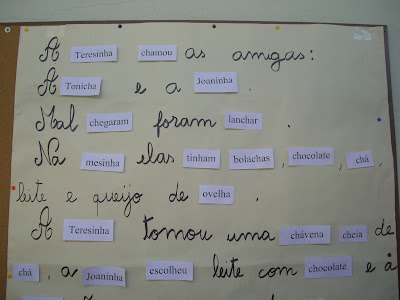 A Teresinha chamou as amigas:
A Tonicha e a Joaninha.
Mal chegaram foram lanchar.
Na mesinha elas tinham bolachas, chocolate, chá,
leite e queijo de ovelha.
A Teresinha tomou uma chávena cheia de
chá, a Joaninha escolheu leite com chocolate e a